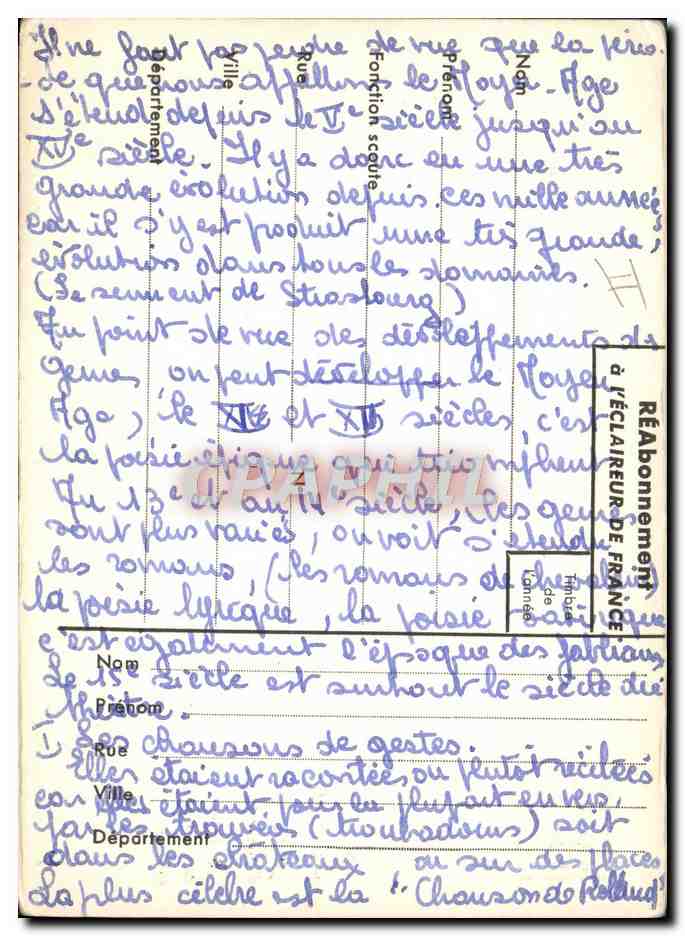 Il ne faut pas perdre de vue que la pério-
-de que nous appellons le Moyen-Age
s'étend depuis le Ve siècle jusqu'au
XVe siècle. Il y a donc eu une très
grande évolution depuis ces mille années
car il s'y est produit une très grande
évolution dans tous les domaines.
(Le serment de Strasbourg)
II
Au point de vue des développements des
genres on peut développer le Moyen
Age, le XIe et XII siècles, c'est
la poésie épique qui triomphent
Au 13e et au 14e siècle, les genres
sont plus variés, on voit s'étendre
les romans, (les romans de chevalerie
la poésie lyrique, la poésie satirique
c'est egalement l'époque des fabliaux
Le 15e siècle est surtout le siècle du
théâtre.
I Les chansons de gestes.
Elles étaient racontées ou plutôt récitées
car elles étaient pour la plupart en vers,
par les trouvères (troubadours) soit
dans les châteaux ou sur des places
La plus célèbre est la "Chanson de Rolland"
Nom
Prénom
Fonction scoute
Rue
Ville
Département
No
RÉAbonnement
à L'ÉCLAIREUR DE FRANCE
Timbre
de
l'année
Nom
Prénom
Rue
Ville
Département
CPAPHIL